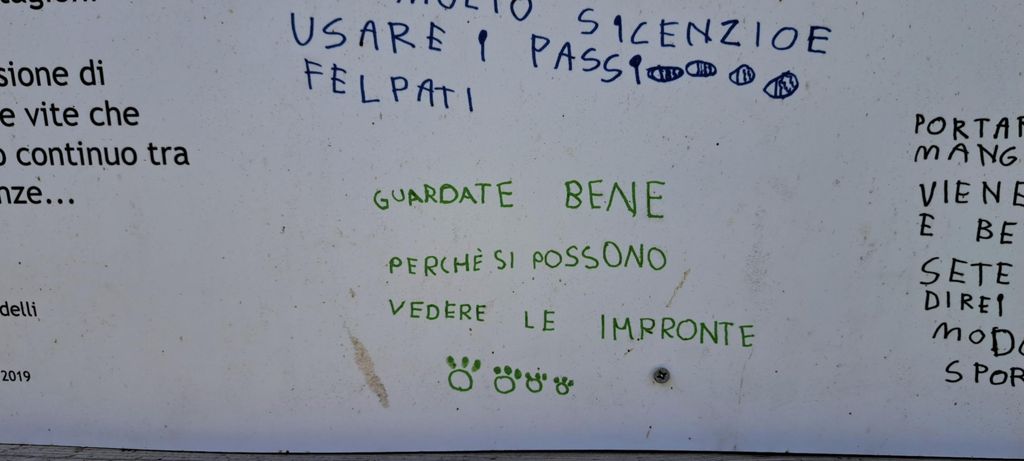 sione di
e vite che
o continuo tra
nze...
delli
2019
MOLTO SICENZIOE
USARE I PASSI
FELPATI
GUARDATE BENE
PERCHÈ SI POSSONO
VEDERE LE IMPRONTE
PORTA
MANG
VIENE
E BE
SETE
DIREI
MODO
SPOR